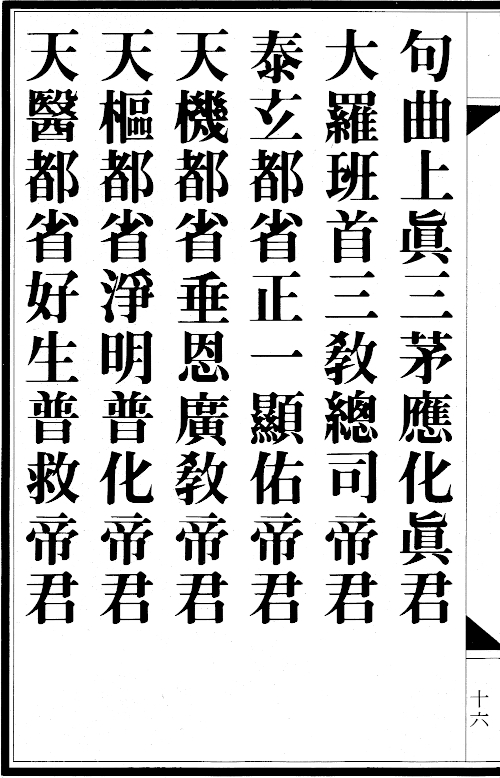 句曲上眞三茅應化眞君
大羅班首三敎總司帝君
泰玄都省正一顯佑帝君
天機都省垂恩廣敎帝君
天樞都省淨明普化帝君
天醫都省好生普救帝君
十六